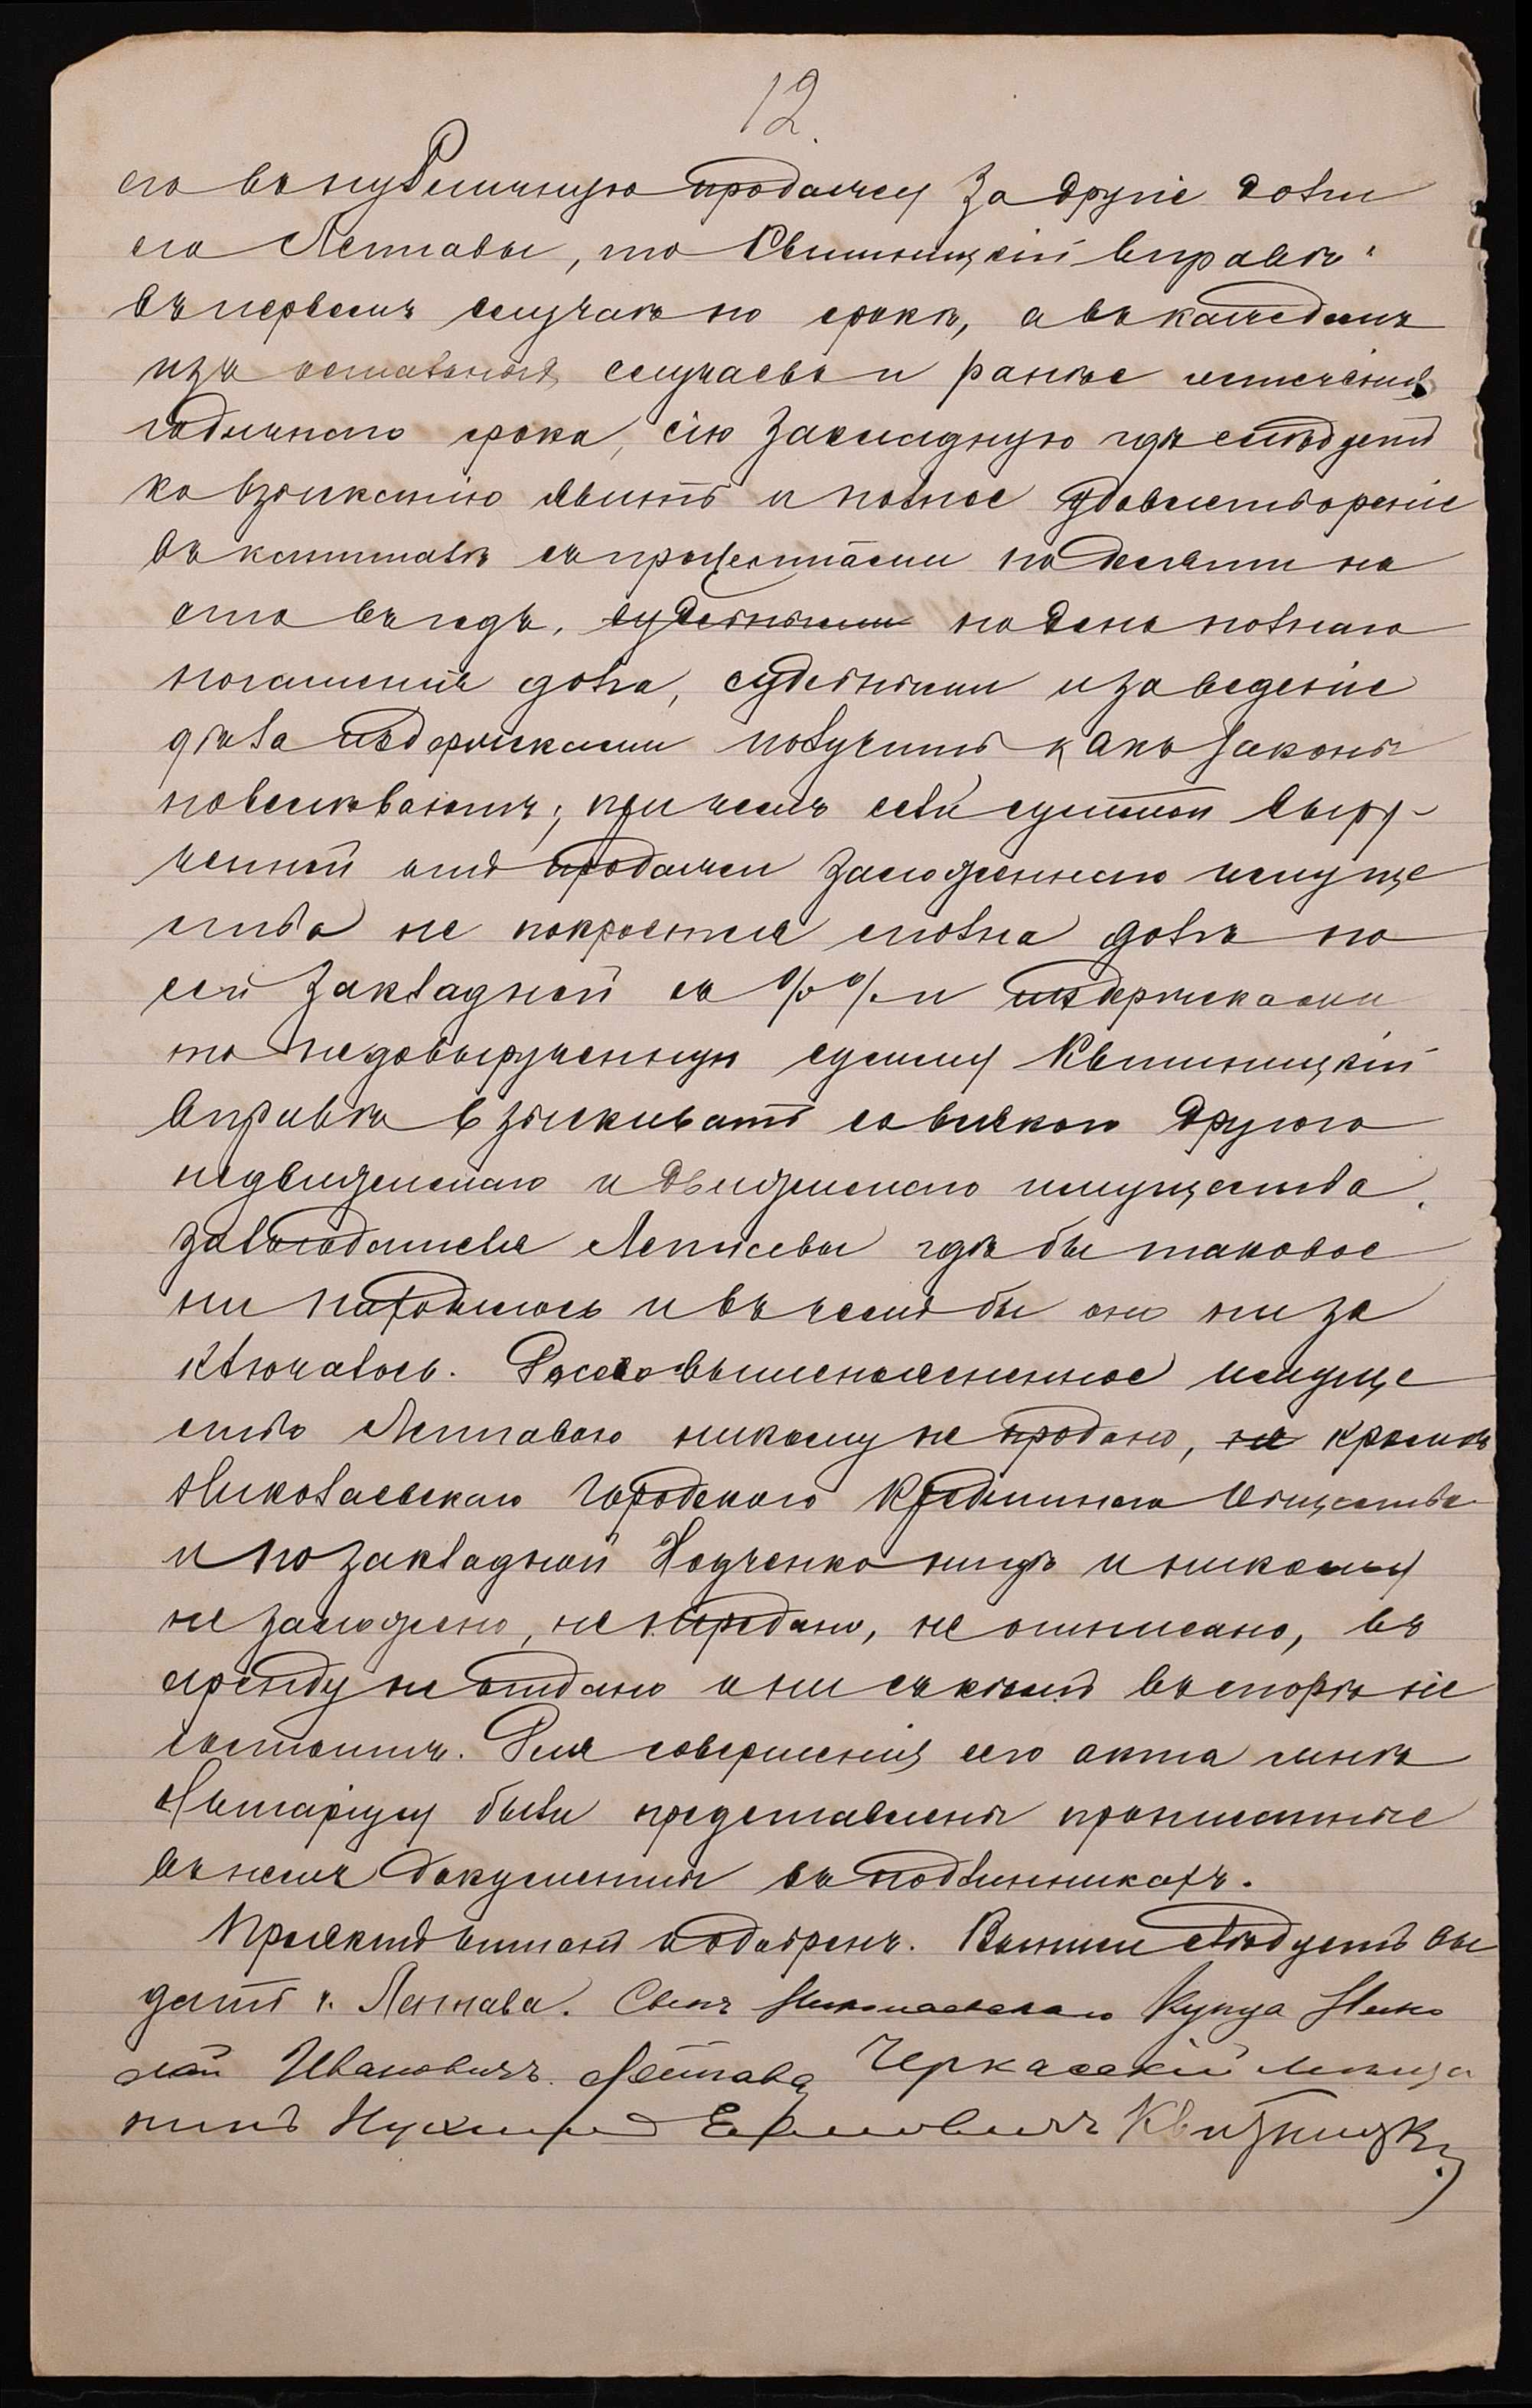 12.
его въ публичную продажу за другіе долги
его Лептавы, то Квитницкій вправѣ:
въ первомъ случаѣ по срокѣ, а въ каждомъ
изъ остальныхъ случаевъ и ранѣе истеченія
годичнаго срока, сію закладную гдѣ слѣдуетъ
ко взысканію явить и полное удовлетвореніе
въ капиталѣ съ процентами по десяти на
сто въ годъ, судебными по день полнаго
погашенія долга, судебными и за веденіе
дѣла издержками получить какъ законы
повелѣваютъ; при чемъ если суммой выру-
ченной отъ продажи заложеннаго имуще
ства не покроется сполна долгъ по
сей закладной съ %% и издержками
то недовырученную сумму Квитницкій
вправѣ взыскивать со всякаго другого
недвижимаго и движимаго имущества
залогодателя Лептавы гдѣ бы таковое
ни находилось и въ чемъ бы оно ни за
ключалось. Вышепоясненное имуще
ство Лептавою никому не продано, не кромѣ
Николаевскаго Городского Кредитнаго Общества
и по закладной нигдѣ и никому
не заложено, не передано, не описано, въ
аренду не отдано и ни съ кѣмъ въ спорѣ не
состоитъ. Для совершенія сего акта мнѣ
Нотаріусу были представлены прописанные
въ немъ документы въ подлинникахъ.
Проектъ читанъ и одобренъ. Выписи слѣдуетъ вы
дать г. Лептава. Сынъ Николаевскаго Купца Нико
лай Ивановичъ Лептава Черкасскій мѣща
нинъ Ефимовичъ Квитницкій